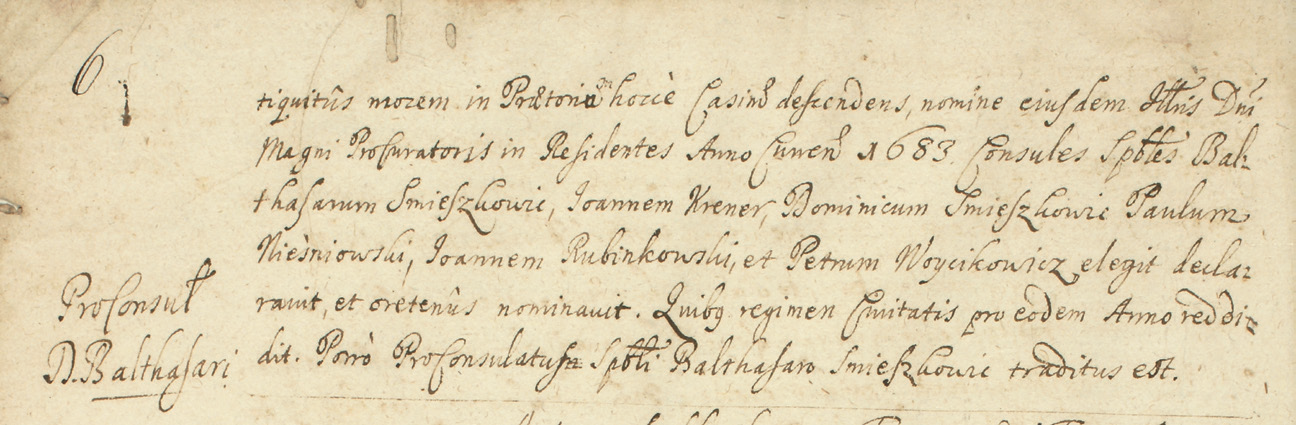 6
tiquitûs morem in Prætorium hocce Casimi descendens, nomine eiusdem Illris Dni
Magni Procuratoris in Residentes Anno Curren 1683 Consules Spbles Bal-
thasarum Smieszkowic, Ioannem Krener, Dominicum Smieszkowic Paulum
Nieśniowski, Ioannem Rubinkowski, et Petrum Woycikowicz elegit decla-
ravit, et oretenûs nominavit. Quibq regimen Civitatis pro eodem Anno reddi-
ProConsul
dit. Porrò ProConsulatus Spbli Balthasaro Smieszkowic traditus est.
D. Balthasari